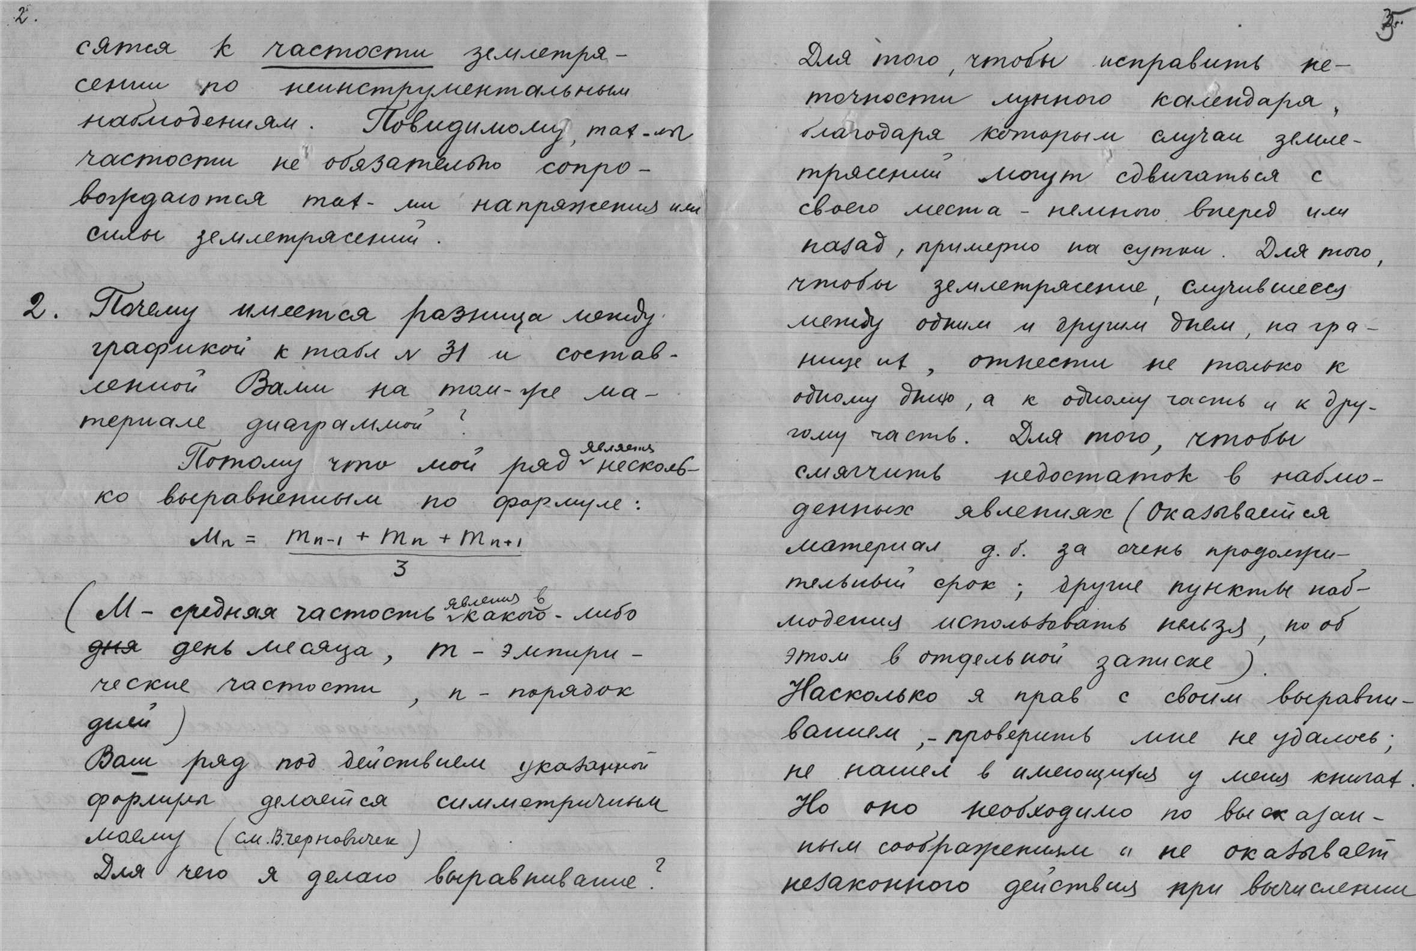 2.
сятся к частости землетря-
сении по неинструментальным
наблюдениям. Повидимому, max-мы
частости не обязательно сопро-
вождаются max-ми напряжения или
силы землетрясений.
2. Почему имеется разница между
графикой к табл № 31 и состав-
ленной Вами на том-же ма-
териале диаграммой?
Потому что мой ряд является несколь-
ко выравненным по формуле:
Mn = mn-1 + mn + mn+1
3
(М - средняя частость явления в какого-либо
дня день месяца, m - эмпири-
ческие частости, n - порядок
дней)
Ваш ряд под действием указанной
формулы делается симметричным
моему (см. В. черновичек)
Для чего я делаю выравнивание?
Для того, чтобы исправить не-
точности лунного календаря,
благодаря которым случаи земле-
трясений могут сдвигаться с
своего места - немного вперед или
назад, примерно на сутки. Для того,
чтобы землетрясение, случившееся
между одним и другим днем, на гра-
нице их, отнести не только к
одному дню, а к одному часть и к дру-
гому часть. Для того, чтобы
смягчить недостаток в наблю-
денных явлениях (Оказывается
материал д.б. за очень продолжи-
тельный срок; другие пункты наб-
людения использовать нельзя, но об
этом в отдельной записке)
Насколько я прав с своим выравни-
ванием, - проверить мне не удалось;
не нашел в имеющихся у меня книгах.
Но оно необходимо по высказан-
ным соображениям и не оказывает
незаконного действия при вычислении